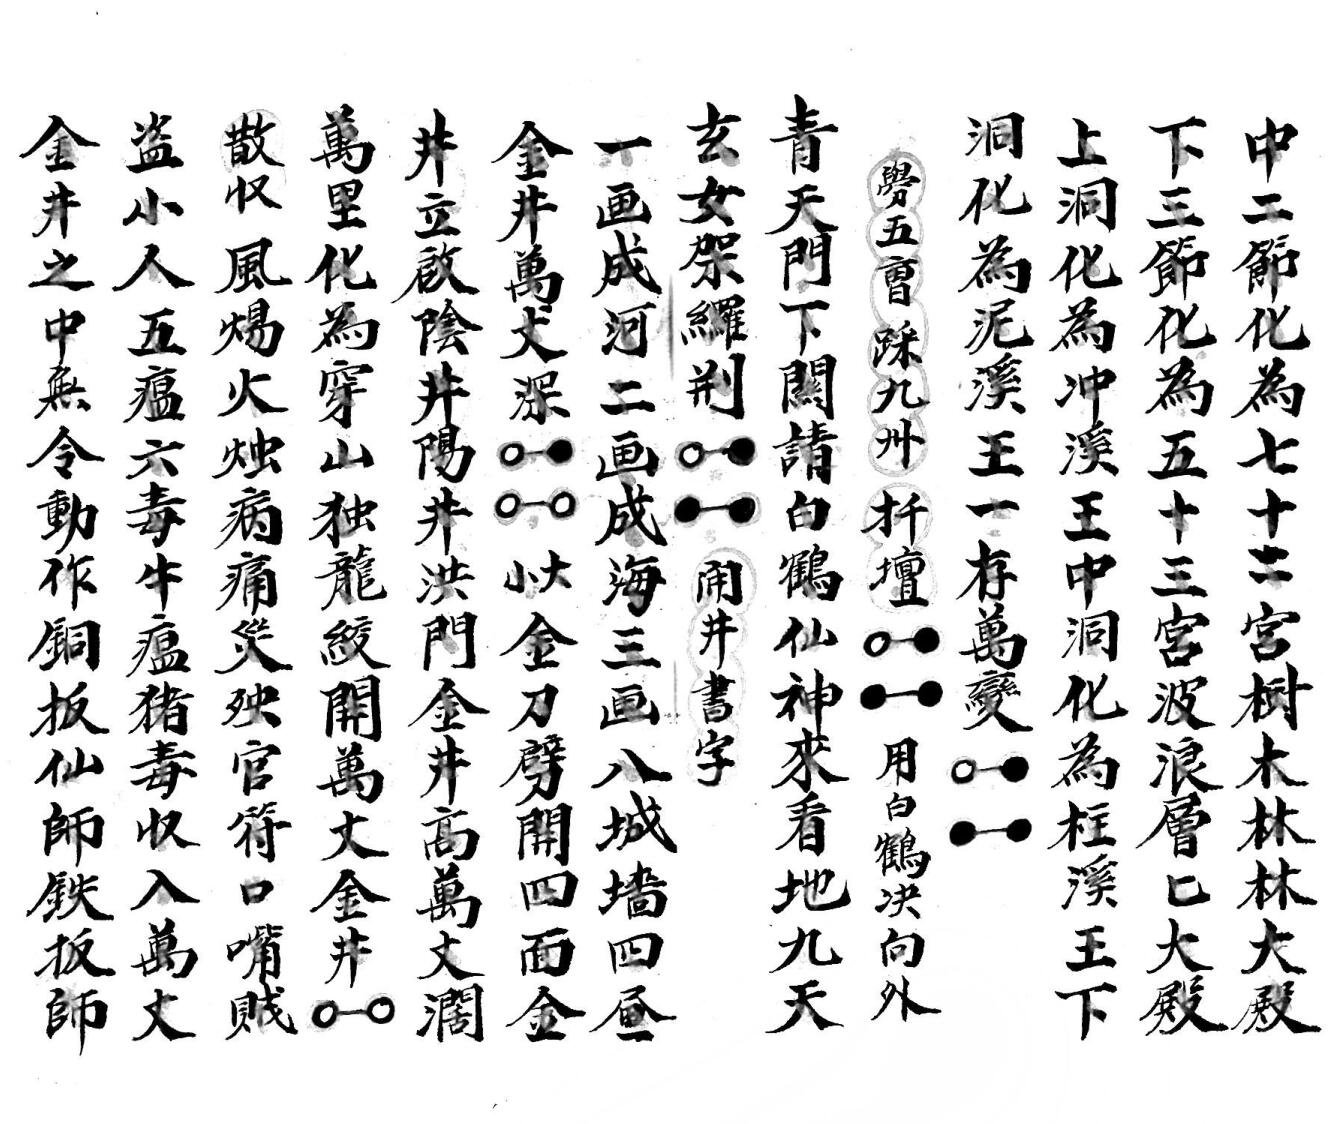 中二節化為七十二宮樹木林林大殿
下三節化為五十三宮波浪層匕大殿
上洞化為冲溪王中洞化為柱溪王下
洞化為泥溪王一存萬變
五雷 踩九州 扦壇 用白鶴决向外
青天門下關請白鶴仙神來看地九天
玄女架羅荆 開井書字
一画成河二画成海三画八城墻四画
金井萬丈深 大小金刀劈開四面金
井立啟陰井陽井洪門金井高萬丈濶
萬里化為穿山独龍絞開萬丈金井
散収風煬火烛病痛災殃官符口嘴賊
盗小人五瘟六毒牛瘟猪毒収入萬丈
金井之中無令動作銅扳仙師鉄扳師